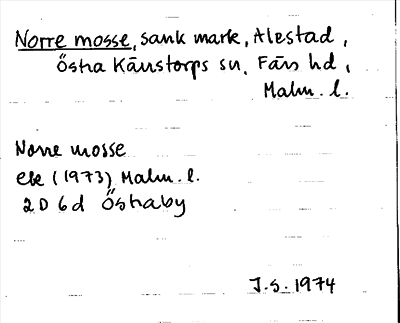 Norre mosse, sank mark, Alestad,
Östra Kärrstorps sn, Färs hd,
Malm. l.
Norre mosse
ek (1973) Malm. l.
2D 6d Östraby
J.S. 1974